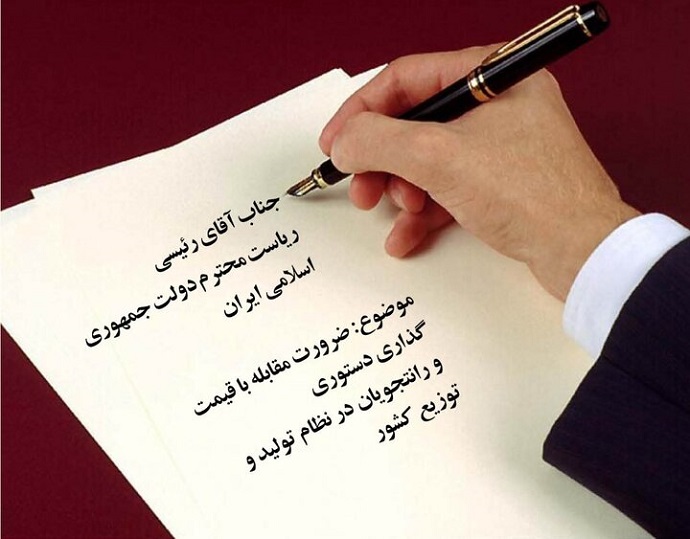 جناب آقای رئیسی
ریاست محترم دولت جمهوری
اسلامی ایران
موضوع: ضرورت مقابله با قیمت
گذاری دستوری
و رانتجویان در نظام تولید و
توزیع کشور